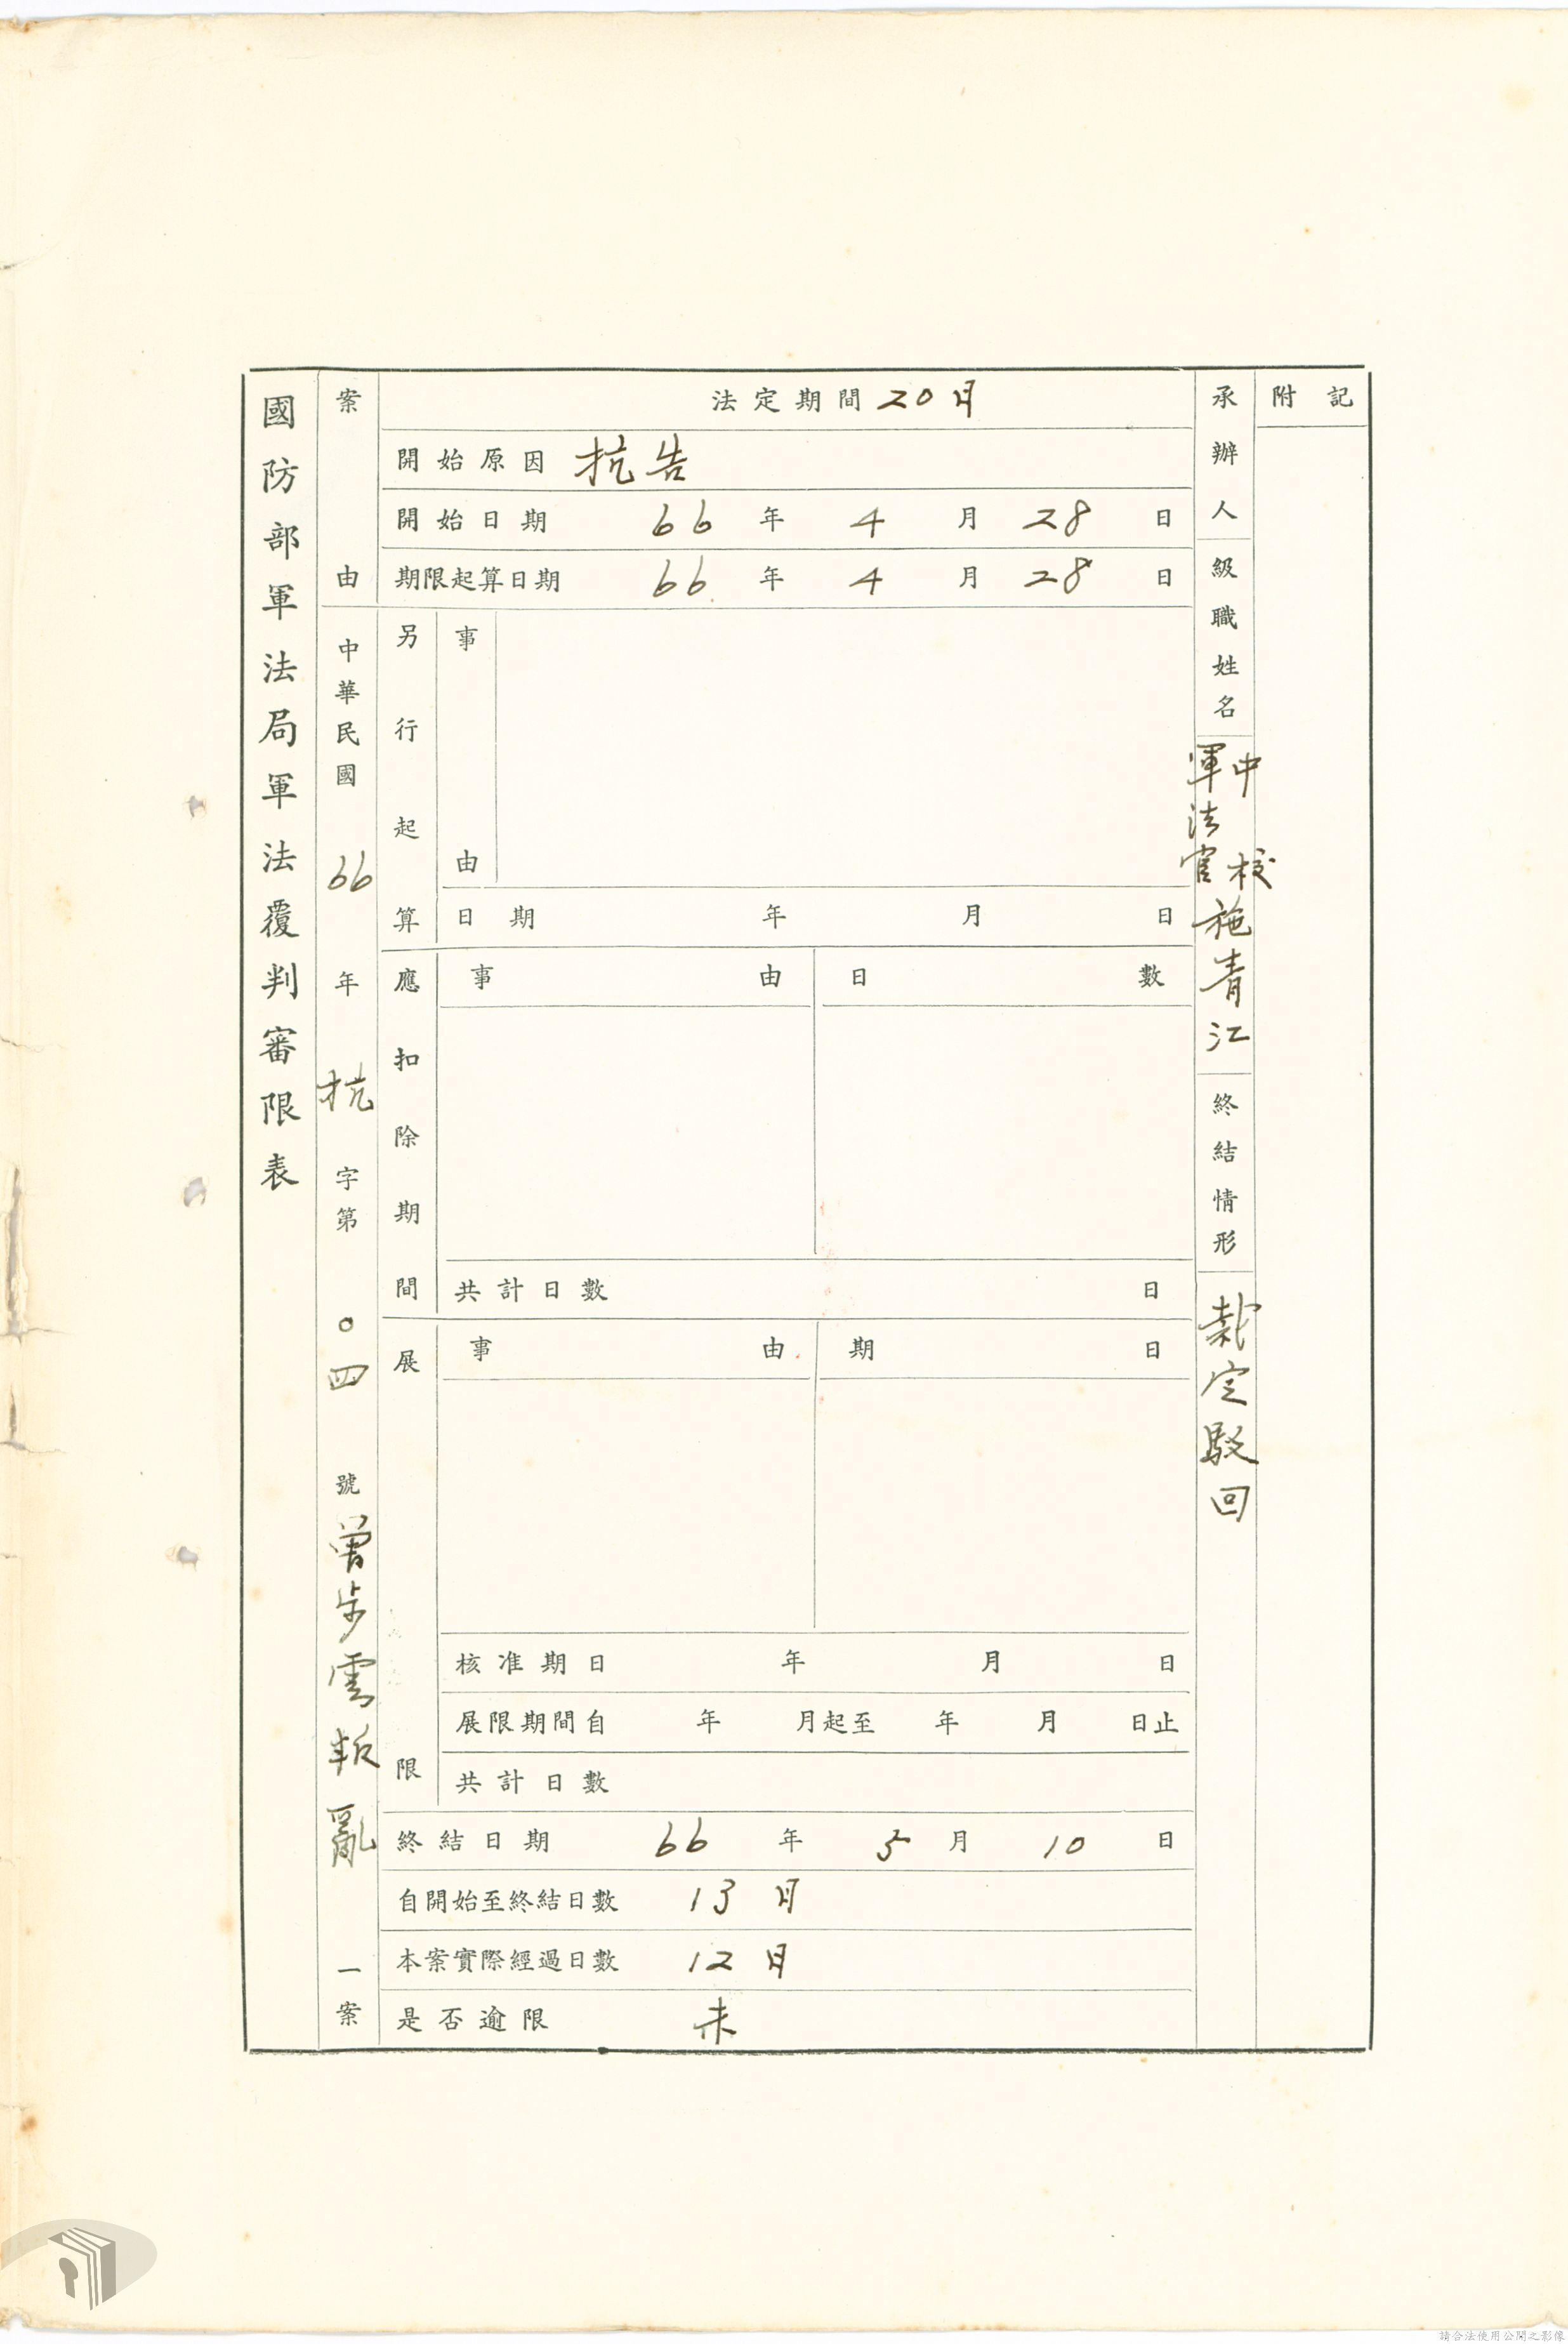 國防部軍法局軍法覆判審限表
案由
中華民國66年抗字第〇四號曾步雲叛亂一案
法定期間 20日
開始原因 抗告
開始日期 66年4月28日
期限起算日期 66年4月28日
另行起算
事由
日期 年 月 日
應扣除期間
事由 日數
共計日數 日
展限
事由 期日
核准期日 年 月 日
展限期間自 年 月起至 年 月 日止
共計日數
終結日期 66年5月10日
自開始至終結日數 13日
本案實際經過日數 12日
是否逾限 未
承辦人級職姓名
中校
軍法官
施青江
終結情形
裁定駁回
附記
請合法使用公開之影像